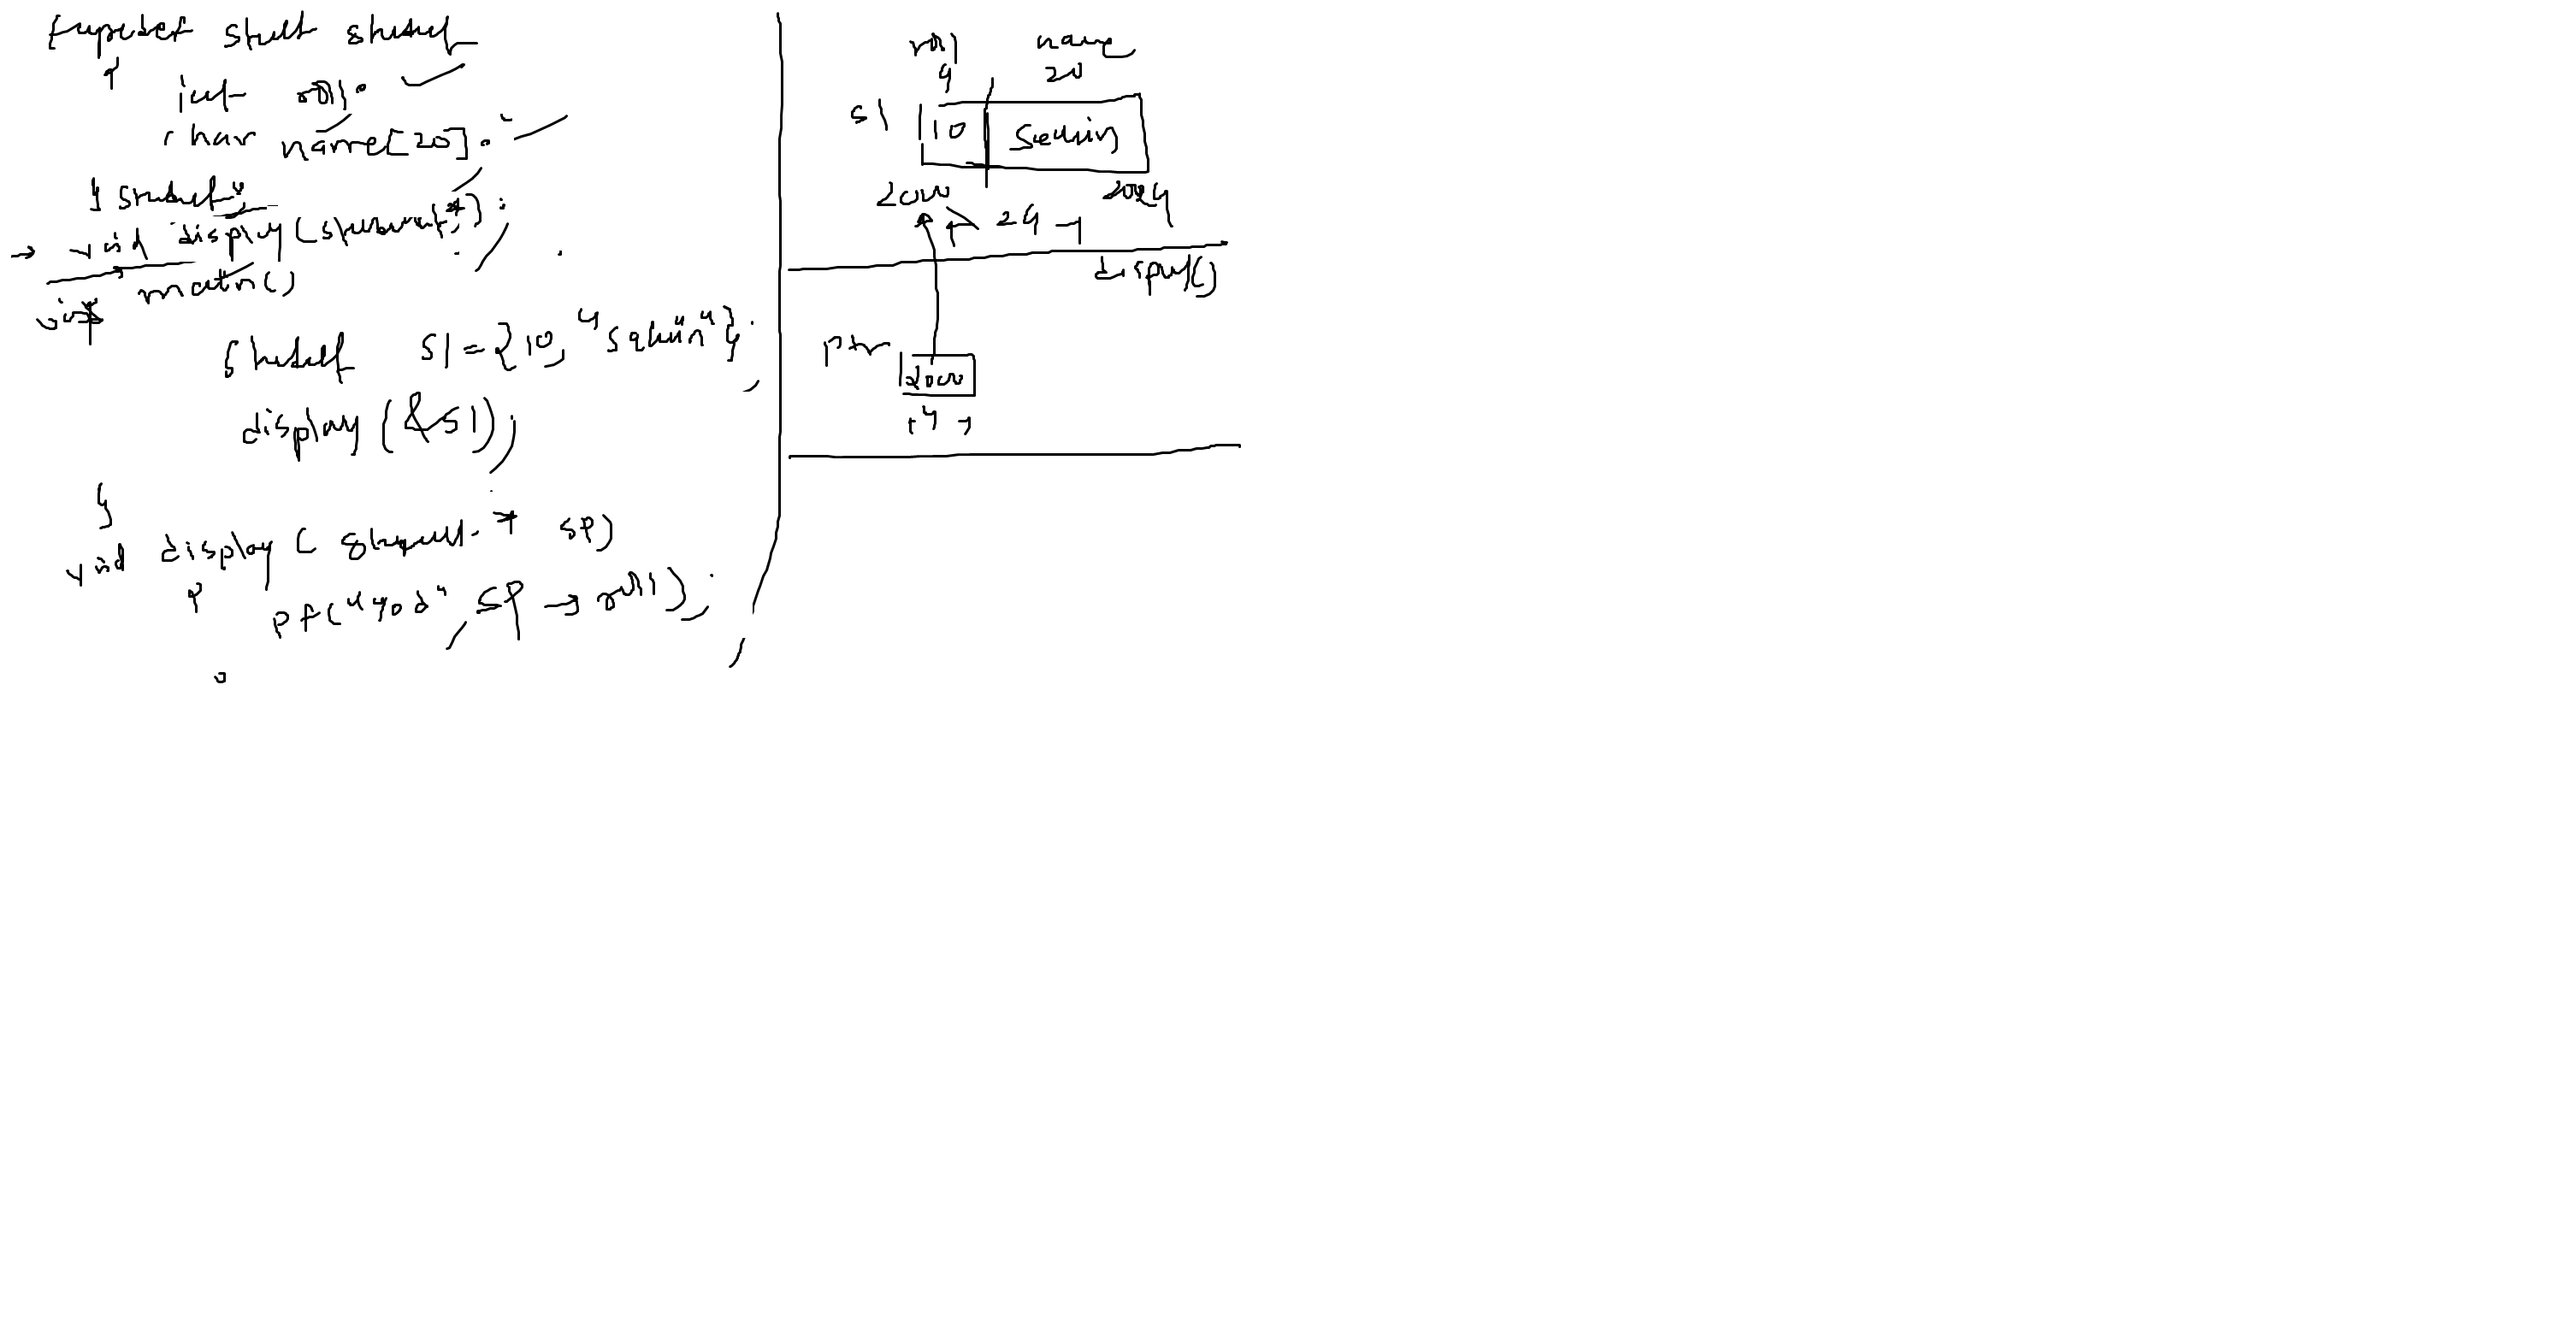 typedef struct student
{
int roll;
char name[20];
} student;
→ void display(student*);
int main()
{
student s1={10, "sachin"};
display(&s1);
}
void display(student * sp)
{
pf("%d", sp→roll);
roll name
4 20
s1 10 Sachin
2000 2024
24
display()
ptr
2000
4